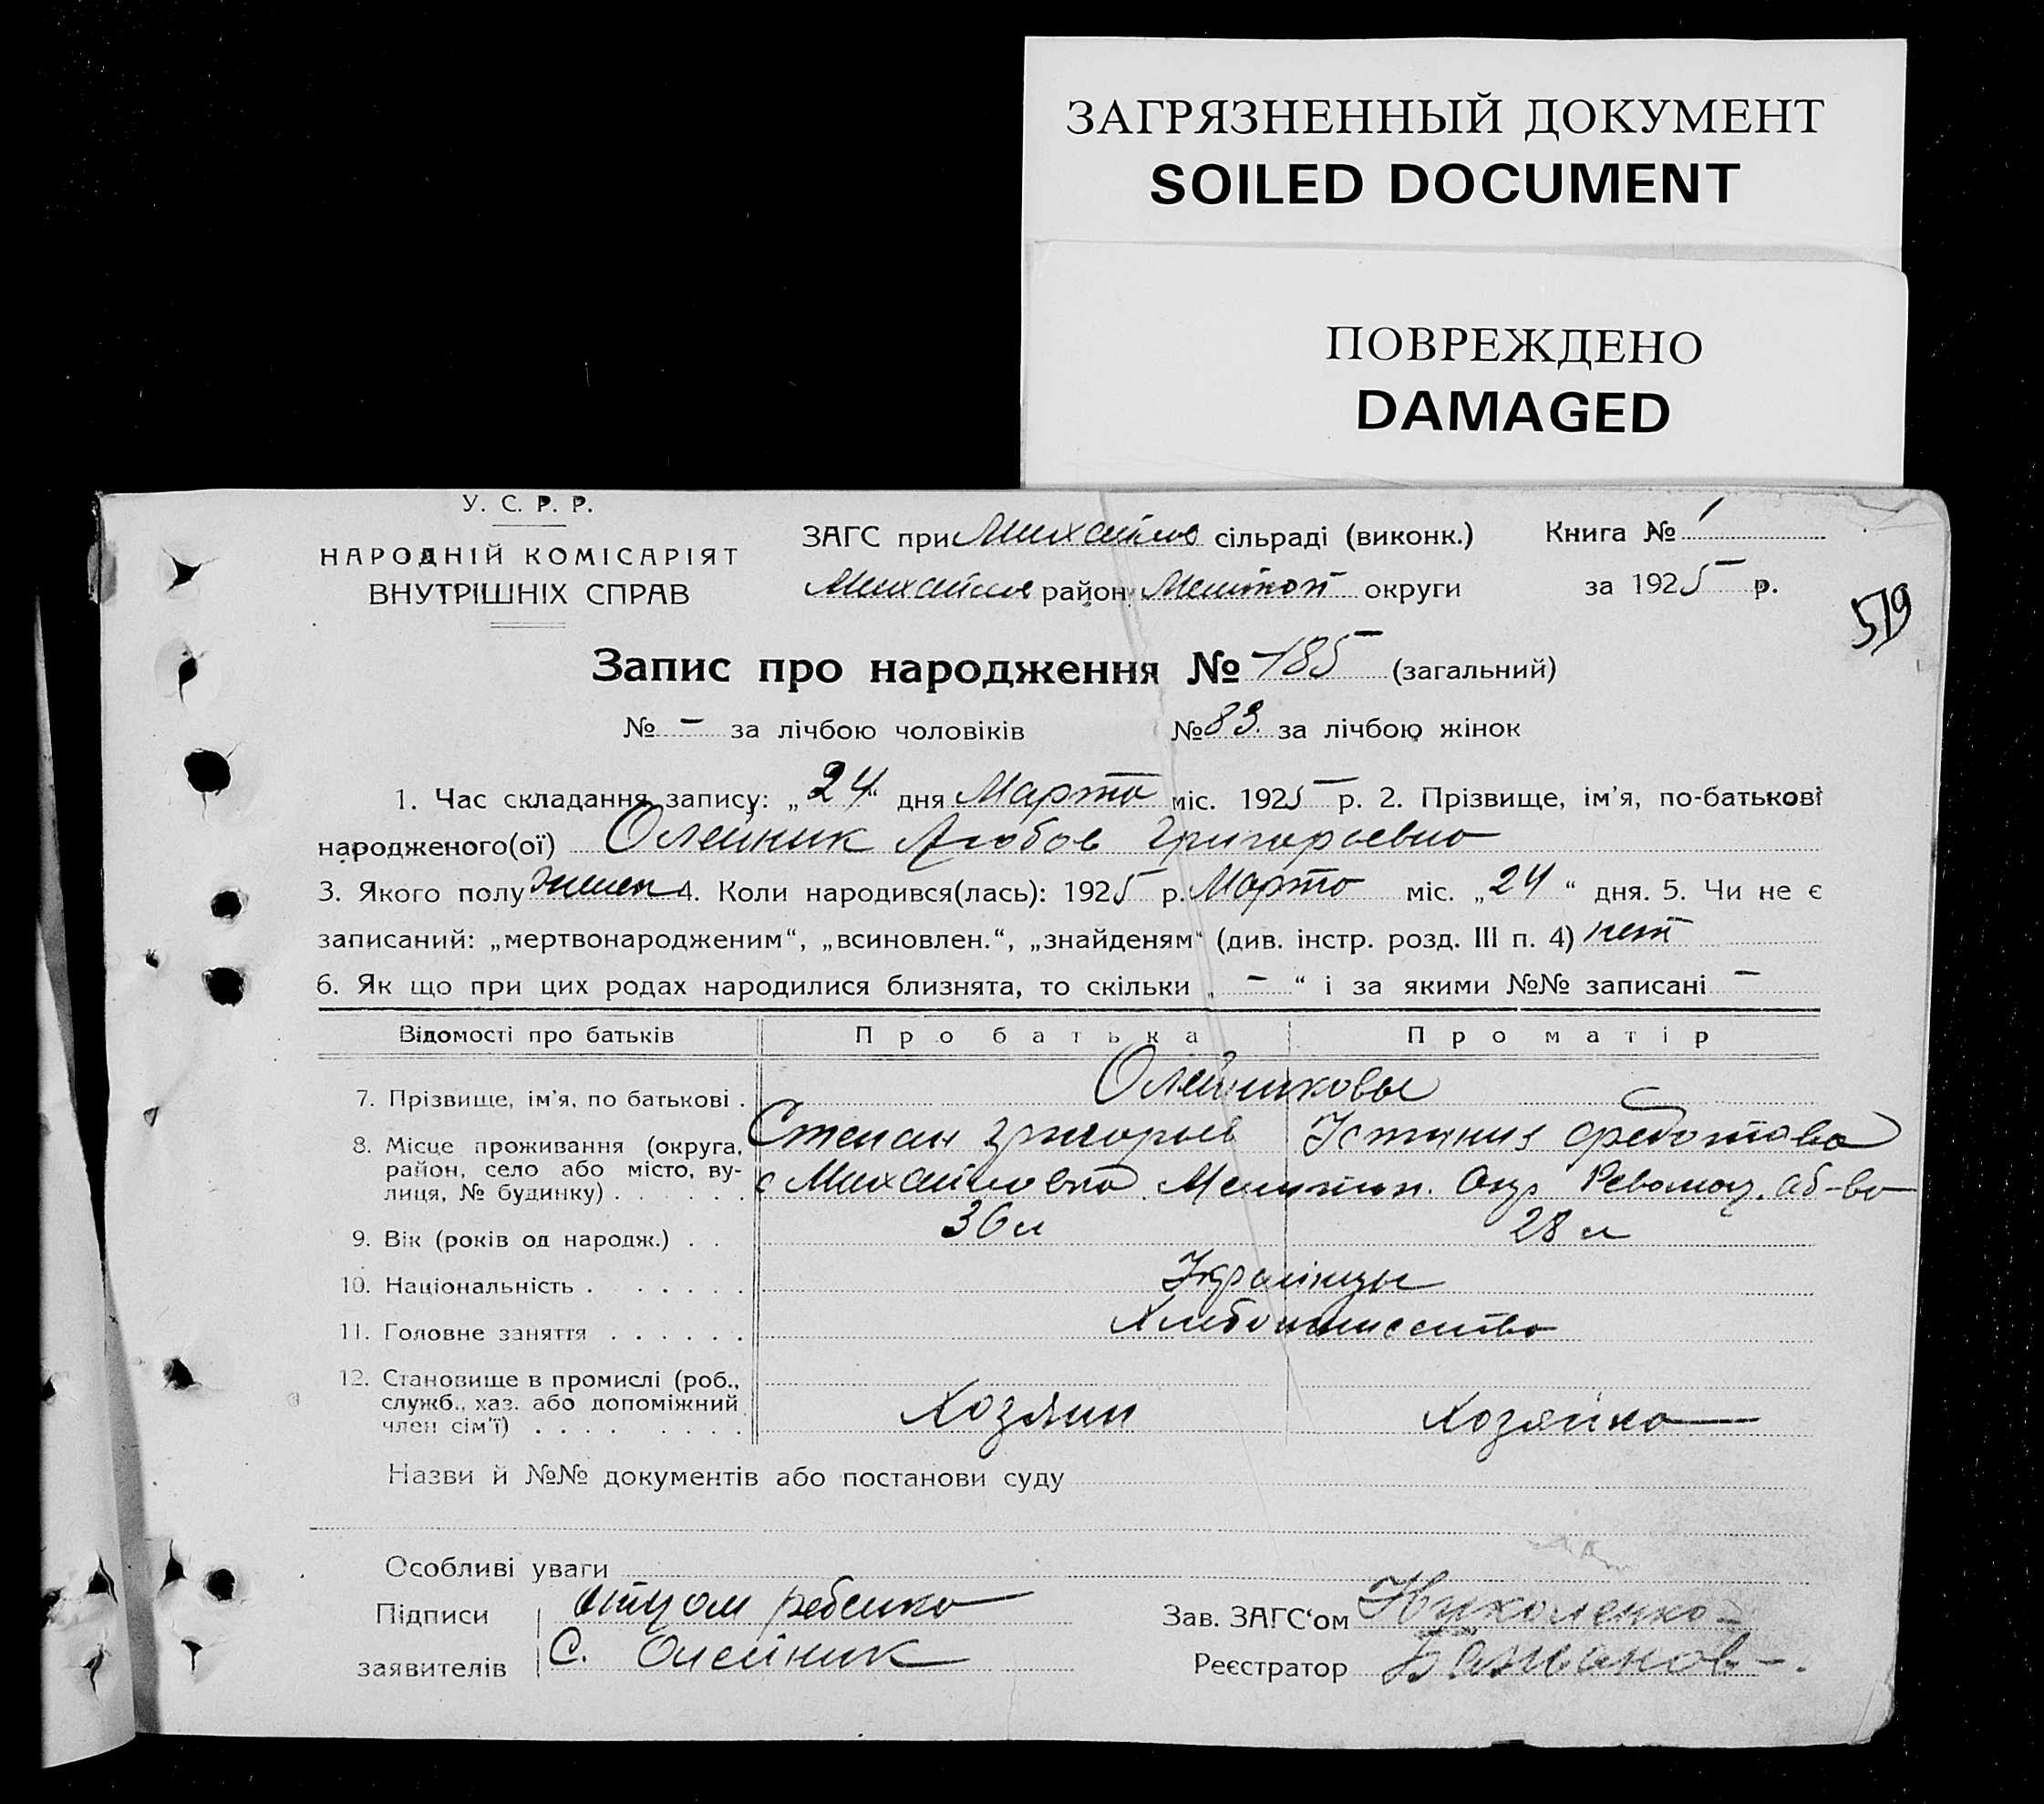 ЗАГРЯЗНЕННЫЙ ДОКУМЕНТ
SOILED DOCUMENT
ПОВРЕЖДЕНО
DAMAGED
У. С. Р. Р.
НАРОДНІЙ КОМІСАРІЯТ
ВНУТРІШНІХ СПРАВ
ЗАГС при Михайлов сільраді (виконк.) Книга № 1
Михайлов район Мелитоп округи за 1925 р.
519
Запис про народження № 185 (загальний)
№ - за лічбою чоловіків № 83. за лічбою жінок
1. Час складання запису: „24“ дня Марта міс. 1925 р. 2. Прізвище, ім'я, по-батькові
народженого(ої) Олейник Любов Григорьевна
3. Якого полу женск 4. Коли народився(лась): 1925 р. Марта міс. „24“ дня. 5. Чи не є
записаний: „мертвонародженим“, „всиновлен.“, „знайденям“ (див. інстр. розд. III п. 4) нет
6. Як що при цих родах народилися близнята, то скільки „ - “ і за якими №№ записані -
Відомості про батьків Про батька Про матір
7. Прізвище, ім'я, по батькові . Олейниковы
8. Місце проживання (округа, Степан Григорьев Устиния Федотова
район, село або місто, ву-
лиця, № будинку) . . . . . . с Михайловка Мелитоп. Окр об-во
9. Вік (років од народж.) . . 36 л 28 л
10. Національність . . . . . . Украінцы
11. Головне заняття . . . . . . Хлебопашество
12. Становище в промислі (роб.,
служб., хаз. або допоміжний Хозяин Хозяйка
член сім'ї) . . . . . . . .
Назви й №№ документів або постанови суду
Особливі уваги
Підписи отцом ребенка Зав. ЗАГС‘ом Николенко
заявителів С. Олейник Реєстратор Бажанов